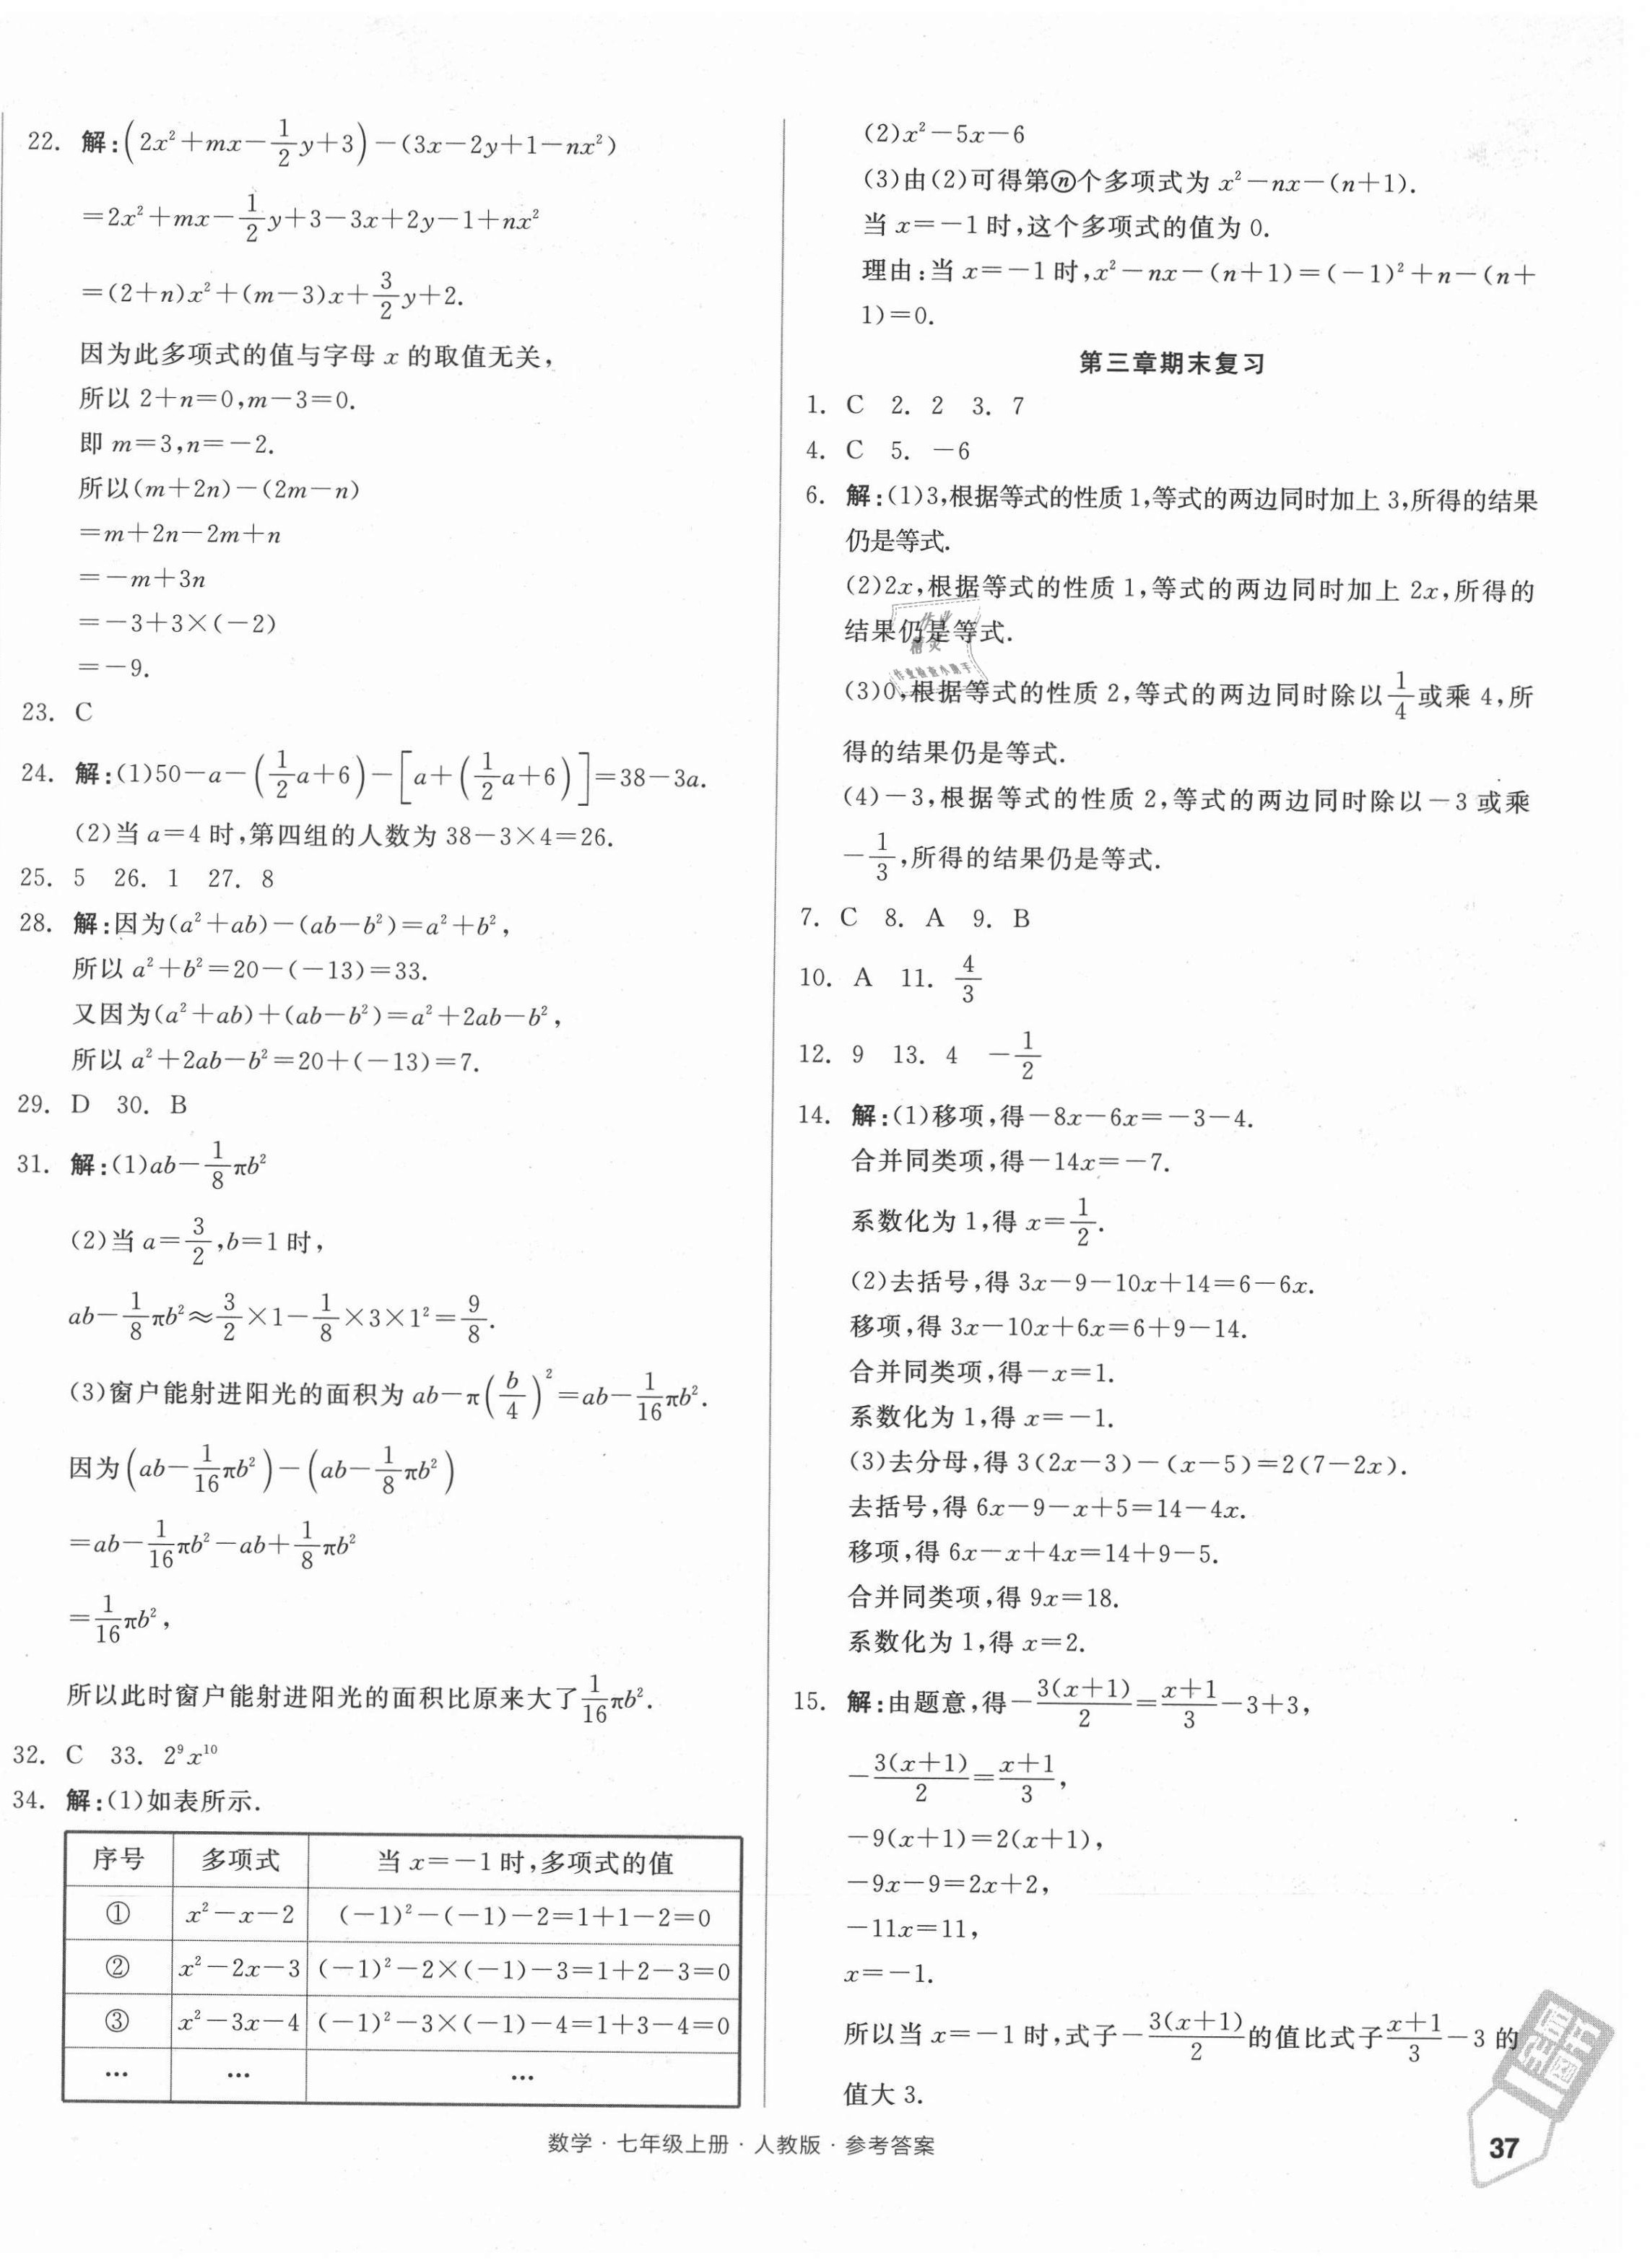 22. 解:(2x²+mx-1/2y+3)-(3x-2y+1-nx²)
=2x²+mx-1/2y+3-3x+2y-1+nx²
=(2+n)x²+(m-3)x+3/2y+2.
因为此多项式的值与字母 x 的取值无关,
所以 2+n=0,m-3=0.
即 m=3,n=-2.
所以(m+2n)-(2m-n)
=m+2n-2m+n
=-m+3n
=-3+3×(-2)
=-9.
23. C
24. 解:(1)50-a-(1/2a+6)-[a+(1/2a+6)]=38-3a.
(2)当 a=4 时,第四组的人数为 38-3×4=26.
25. 5 26. 1 27. 8
28. 解:因为(a²+ab)-(ab-b²)=a²+b²,
所以 a²+b²=20-(-13)=33.
又因为(a²+ab)+(ab-b²)=a²+2ab-b²,
所以 a²+2ab-b²=20+(-13)=7.
29. D 30. B
31. 解:(1)ab-1/8πb²
(2)当 a=3/2,b=1 时,
ab-1/8πb²≈3/2×1-1/8×3×1²=9/8.
(3)窗户能射进阳光的面积为 ab-π(b/4)²=ab-1/16πb².
因为(ab-1/16πb²)-(ab-1/8πb²)
=ab-1/16πb²-ab+1/8πb²
=1/16πb²,
所以此时窗户能射进阳光的面积比原来大了1/16πb².
32. C 33. 2⁹x¹⁰
34. 解:(1)如表所示.
序号 多项式 当 x=-1 时,多项式的值
① x²-x-2 (-1)²-(-1)-2=1+1-2=0
② x²-2x-3 (-1)²-2×(-1)-3=1+2-3=0
③ x²-3x-4 (-1)²-3×(-1)-4=1+3-4=0
… … …
(2)x²-5x-6
(3)由(2)可得第ⓝ个多项式为 x²-nx-(n+1).
当 x=-1 时,这个多项式的值为 0.
理由:当 x=-1 时,x²-nx-(n+1)=(-1)²+n-(n+
1)=0.
第三章期末复习
1. C 2. 2 3. 7
4. C 5. -6
6. 解:(1)3,根据等式的性质 1,等式的两边同时加上 3,所得的结果
仍是等式.
(2)2x,根据等式的性质 1,等式的两边同时加上 2x,所得的
结果仍是等式.
(3)0,根据等式的性质 2,等式的两边同时除以1/4或乘 4,所
得的结果仍是等式.
(4)-3,根据等式的性质 2,等式的两边同时除以-3 或乘
-1/3,所得的结果仍是等式.
7. C 8. A 9. B
10. A 11. 4/3
12. 9 13. 4 -1/2
14. 解:(1)移项,得-8x-6x=-3-4.
合并同类项,得-14x=-7.
系数化为 1,得 x=1/2.
(2)去括号,得 3x-9-10x+14=6-6x.
移项,得 3x-10x+6x=6+9-14.
合并同类项,得-x=1.
系数化为 1,得 x=-1.
(3)去分母,得 3(2x-3)-(x-5)=2(7-2x).
去括号,得 6x-9-x+5=14-4x.
移项,得 6x-x+4x=14+9-5.
合并同类项,得 9x=18.
系数化为 1,得 x=2.
15. 解:由题意,得-3(x+1)/2=(x+1)/3-3+3,
-3(x+1)/2=(x+1)/3,
-9(x+1)=2(x+1),
-9x-9=2x+2,
-11x=11,
x=-1.
所以当 x=-1 时,式子-3(x+1)/2的值比式子(x+1)/3-3 的
值大 3.
作业
精灵
作业检查小助手
数学·七年级上册·人教版·参考答案
37